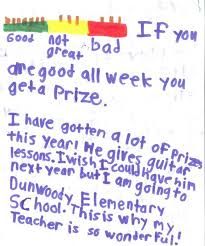 If you
Good not great bad
are good all week you
get a Prize.
I have gotten a lot of Prizes
this year! He gives guitar
lessons. I wish I could have him
next year but I am going to
Dunwoody Elementary
SChool. This is why my
Teacher is so wonderful!